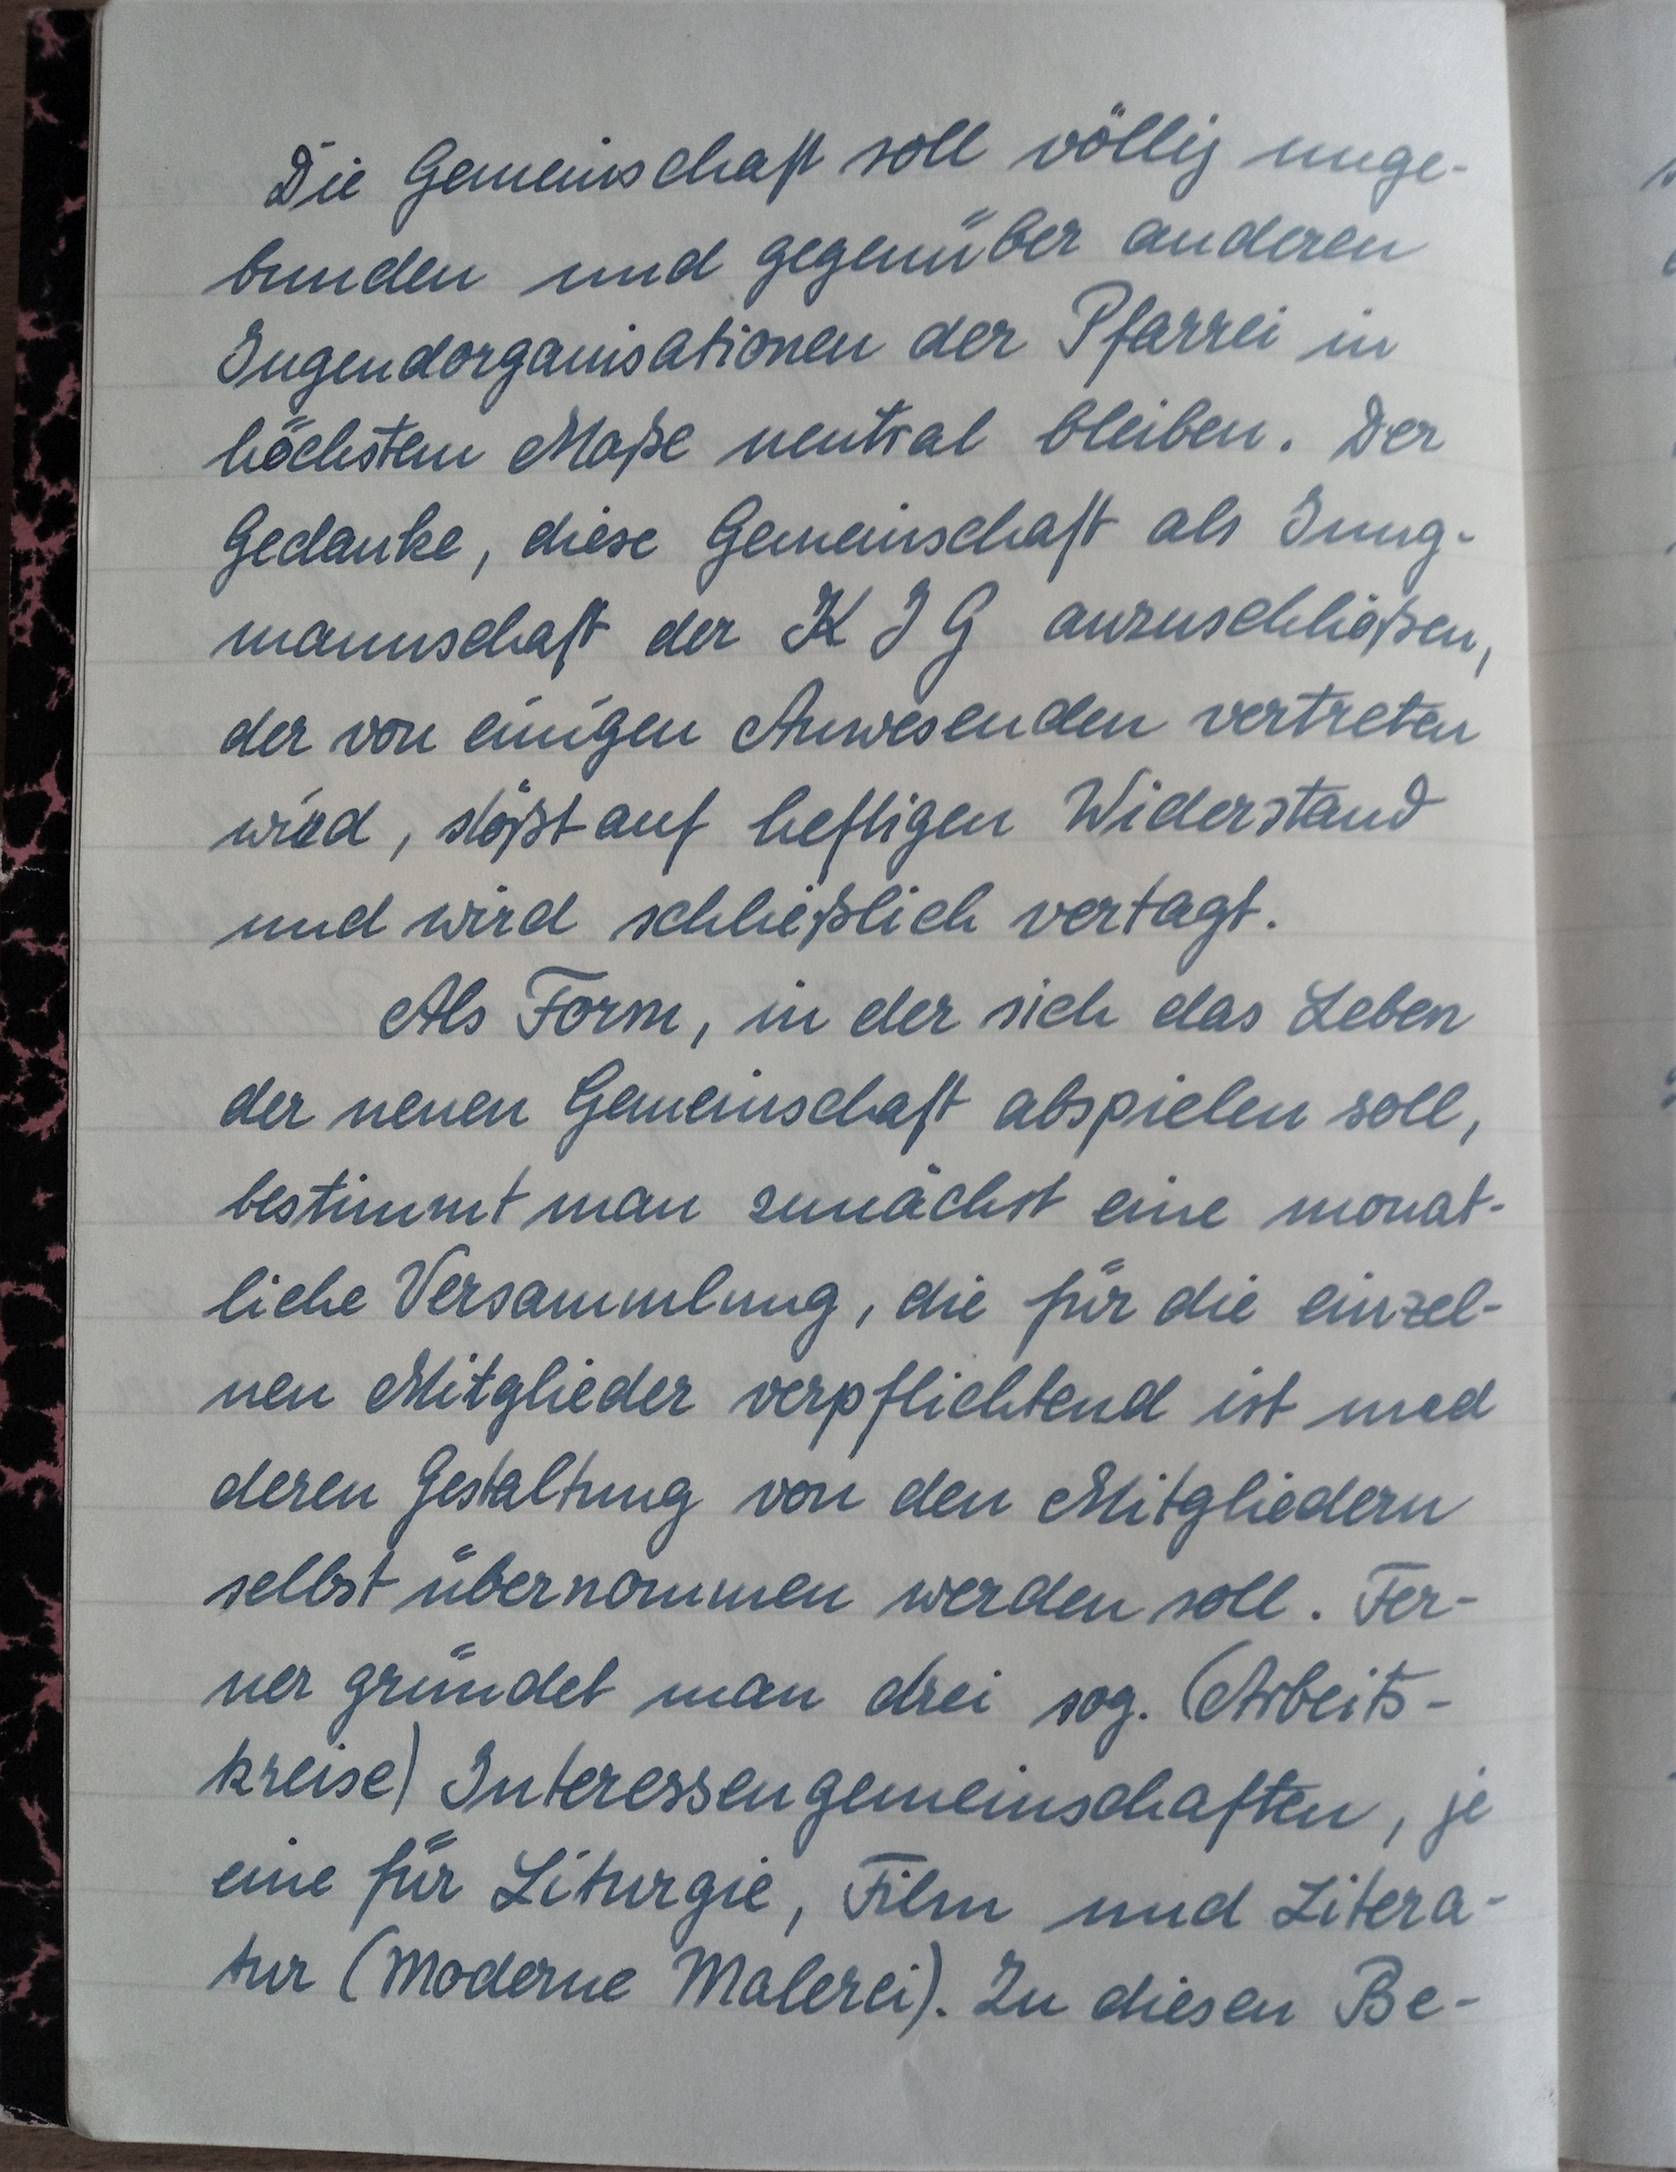 Die Gemeinschaft soll völlig unge-
bunden und gegenüber anderen
Jugendorganisationen der Pfarrei in
höchstem Maße neutral bleiben. Der
Gedanke, diese Gemeinschaft als Jung-
mannschaft der K J G anzuschließen,
der von einigen Anwesenden vertreten
wird, stößt auf heftigen Widerstand
und wird schließlich vertagt.
Als Form, in der sich das Leben
der neuen Gemeinschaft abspielen soll,
bestimmt man zunächst eine monat-
liche Versammlung, die für die einzel-
nen Mitglieder verpflichtend ist und
deren Gestaltung von den Mitgliedern
selbst übernommen werden soll. Fer-
ner gründet man drei sog. (Arbeits-
kreise) Interessengemeinschaften, je
eine für Liturgie, Film und Litera-
tur (Moderne Malerei). Zu diesen Be-